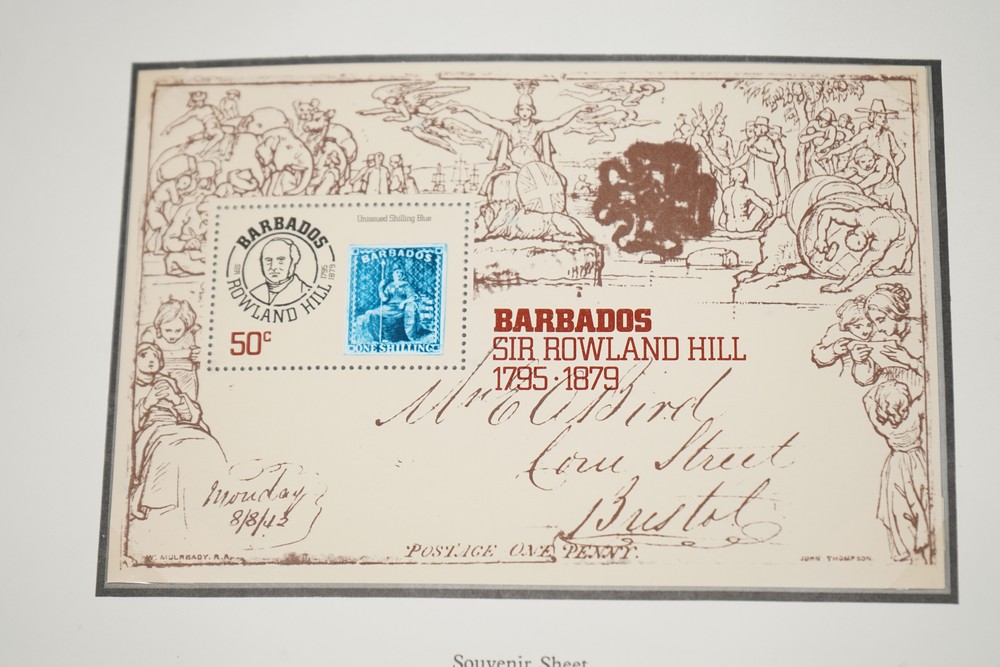 Unissued Shilling Blue
BARBADOS
SIR ROWLAND HILL 1795 1879
50c
BARBADOS
ONE SHILLING
BARBADOS
SIR ROWLAND HILL
1795·1879
Mr E O Bird
Corn Street
Bristol
Monday
8/8/43
POSTAGE ONE PENNY.
W. MULREADY. R.A.
JOHN THOMPSON
Souvenir Sheet